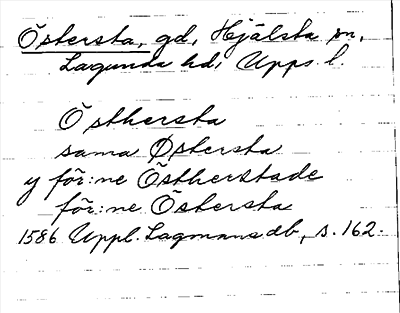 Östersta, gd, Hjälsta sn,
Lagunda hd, Upps. l.
Östhersta
sama Østersta
y för:ne Östherstade
för:ne Östersta
1586 Uppl. Lagmansdb, s. 162.